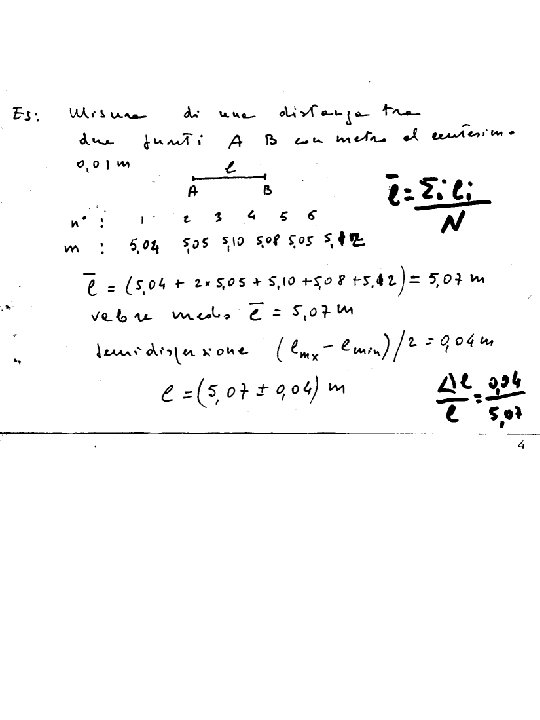 Es: Misura di una distanza tra
due punti A B con metro al centesimo
0,01 m
l
A B
l̄ = Σi li / N
n° : 1 2 3 4 5 6
m : 5,04 5,05 5,10 5,08 5,05 5,12
l̄ = (5,04 + 2×5,05 + 5,10 + 5,08 + 5,12) = 5,07 m
valore medio l̄ = 5,07 m
semidispersione (lmx − lmin)/2 = 0,04 m
l = (5,07 ± 0,04) m
Δl / l = 0,04 / 5,07
4